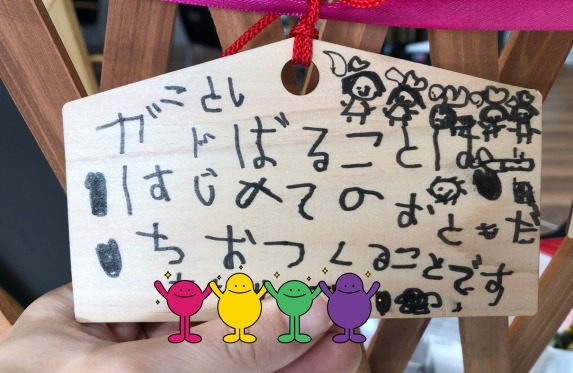 ことし
がんばることは
はじめてのおともだ
ちおつくることです